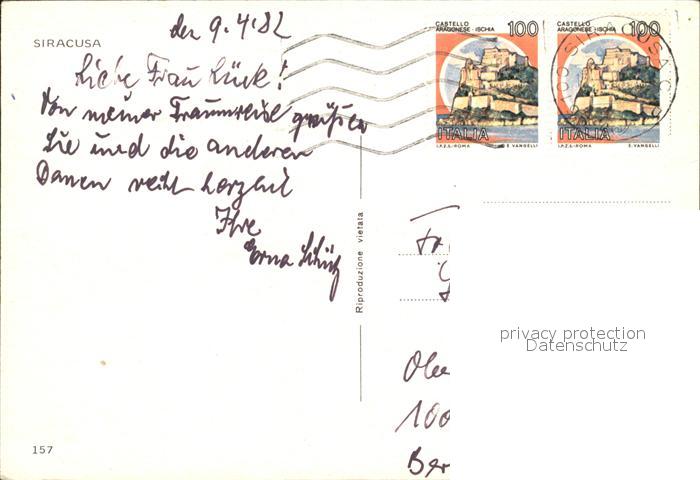 SIRACUSA
den 9.4.82
Liebe Frau Lück!
Von meiner Traumreise grüßen
Sie und die anderen
Damen recht herzlich
Ihre
Erna
CASTELLO
ARAGONESE - ISCHIA 100
ITALIA
I.P.Z.S. - ROMA E. VANGELLI
CASTELLO
ARAGONESE - ISCHIA 100
ITALIA
I.P.Z.S. - ROMA E. VANGELLI
SIRACUSA
Riproduzione vietata
privacy protection
Datenschutz
100
Ber
157